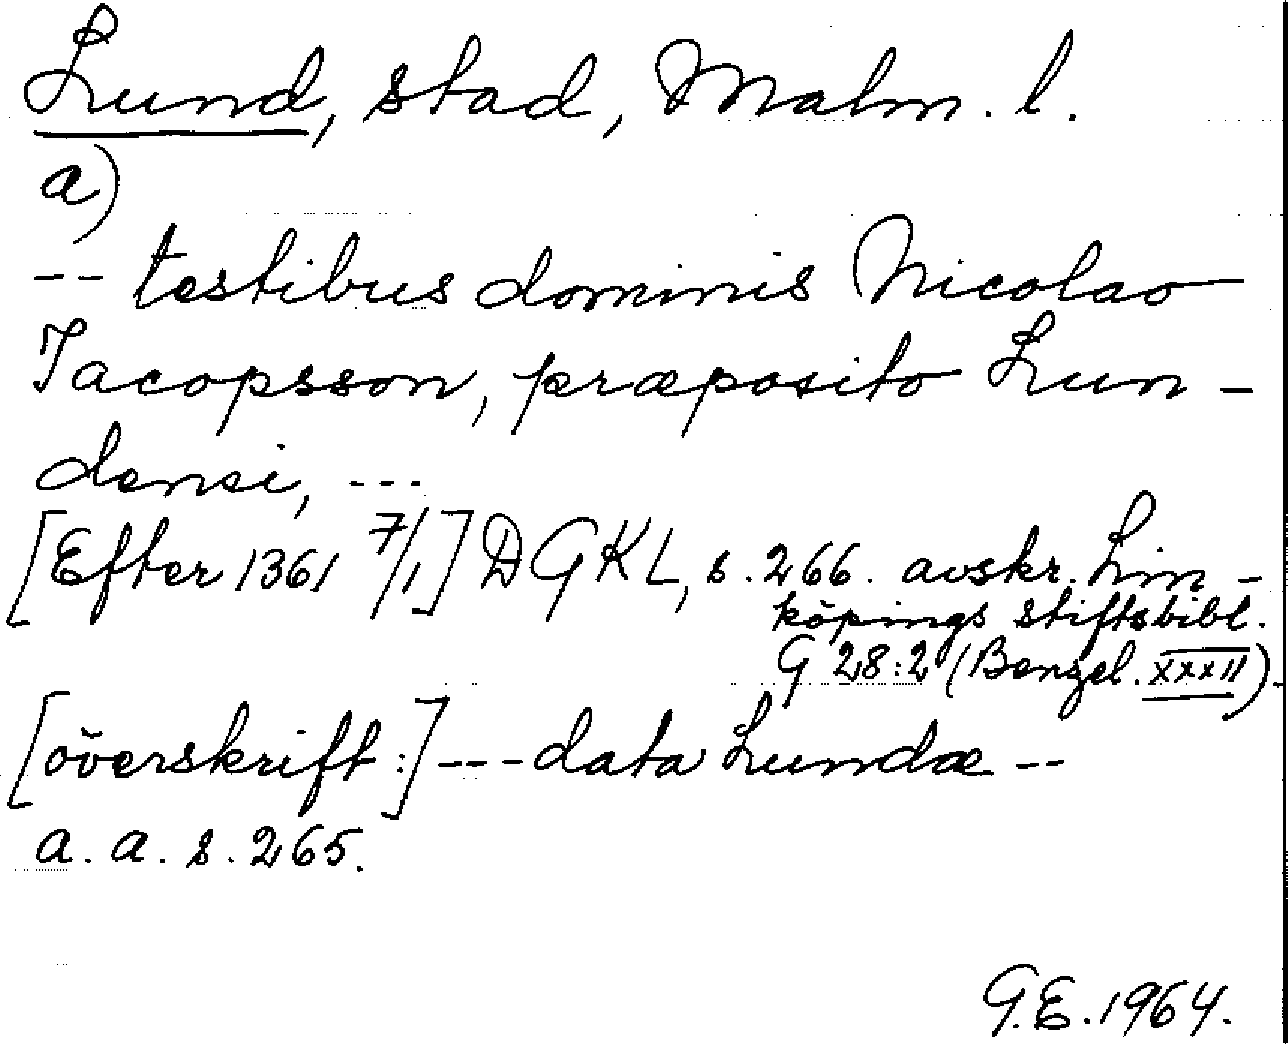 Lund, stad, Malm. l.
a)
-- testibus dominis Nicolao
Jacopsson, præposito Lun-
densi, ---
[Efter 1361 7/1] DGKL, s. 266. avskr. Lin-
köpings stiftsbibl.
G 28:2 (Benzel. XXXII).
[överskrift:] --- data Lundæ --
a. a. s. 265.
G.E. 1964.